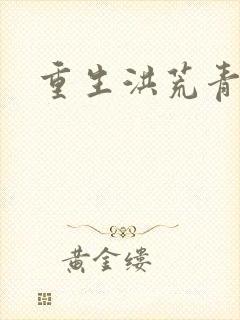 重生洪荒青
黄金缕